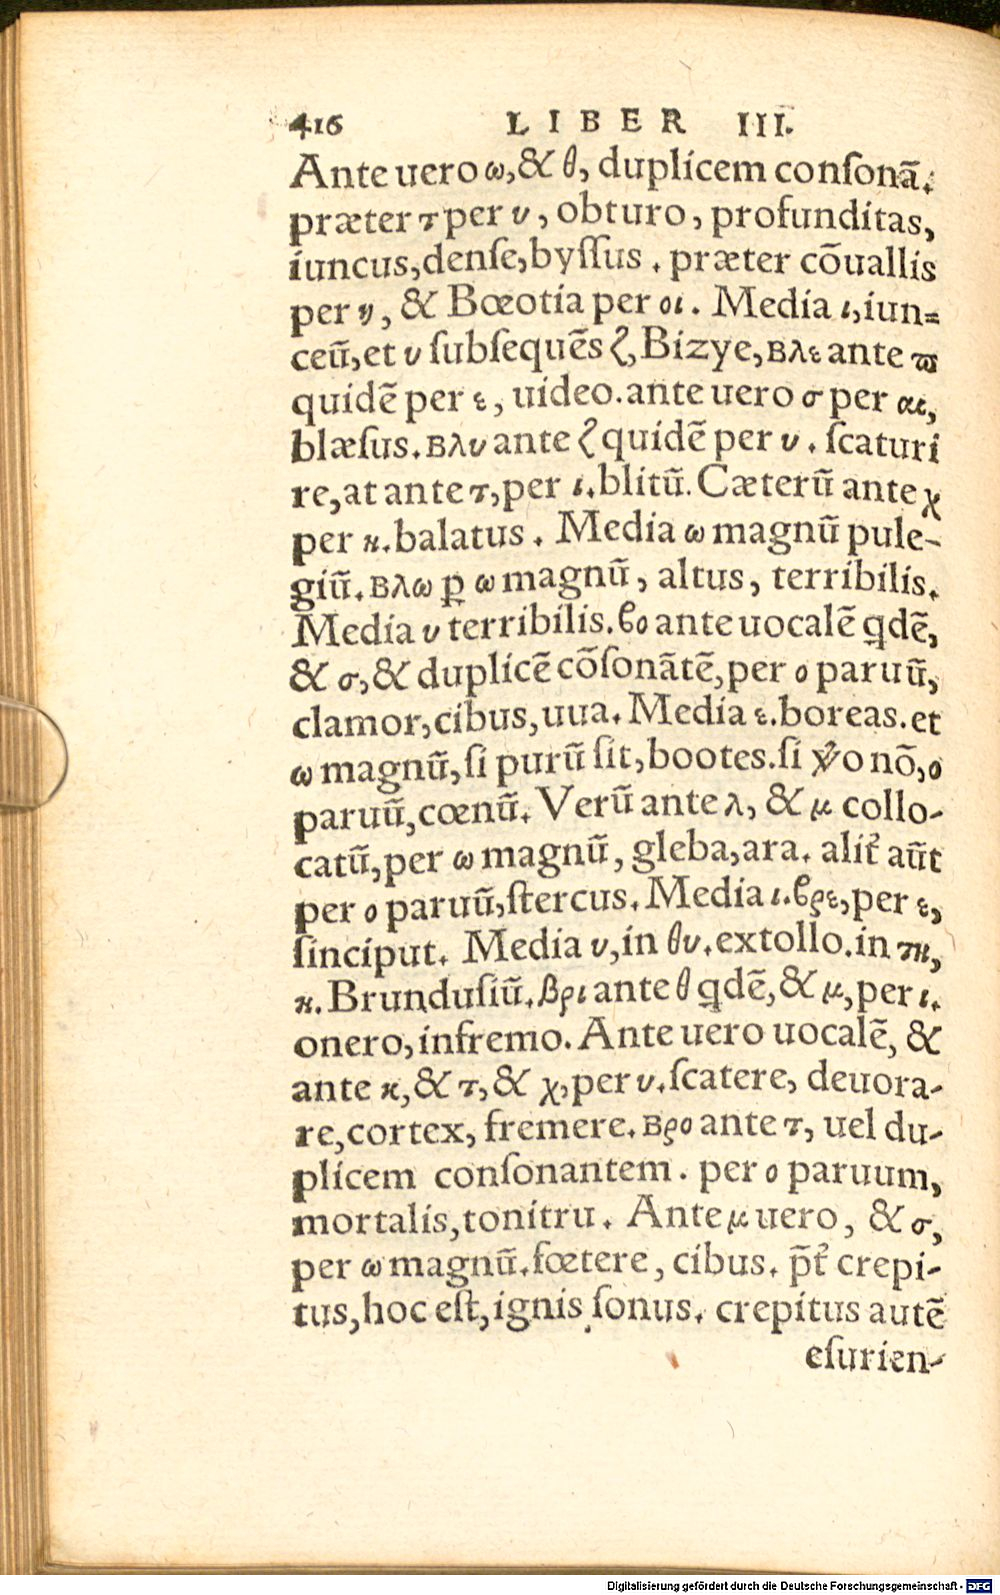 416 LIBER III.
Ante uero ω, & θ, duplicem conſonã.
præter τ per υ, obturo, profunditas,
iuncus, denſe, byſſus. præter cõuallis
per η, & Bœotia per οι. Media ι, iun=
ceũ, et υ ſubſequẽs ζ, Bizye, βλε ante ϖ
quidẽ per ε, uideo. ante uero σ per αι,
blæſus. βλυ ante ζ quidẽ per υ. ſcaturi
re, at ante τ, per ι. blitũ. Cæterũ ante χ
per η. balatus. Media ω magnũ pule-
giũ. βλω ꝑ ω magnũ, altus, terribilis.
Media υ terribilis. ϐο ante uocalẽ qdẽ,
& σ, & duplicẽ cõſonãtẽ, per ο paruũ,
clamor, cibus, uua. Media ε. boreas. et
ω magnũ, ſi purũ ſit, bootes. ſi o nõ, ο
paruũ, cœnũ. Verũ ante λ, & μ collo-
catũ, per ω magnũ, gleba, ara. alit᷑ aũt
per ο paruũ, ſtercus. Media ι. ϐρε, per ε,
ſinciput. Media υ, in θυ. extollo. in τη,
η. Brunduſiũ. βρι ante θ qdẽ, & μ, per ι.
onero, infremo. Ante uero uocalẽ, &
ante κ, & τ, & χ, per υ. ſcatere, deuora-
re, cortex, fremere. βρο ante τ, uel du-
plicem conſonantem. per ο paruum,
mortalis, tonitru. Ante μ uero, & σ,
per ω magnũ. fœtere, cibus. p̃t᷑ crepi-
tus, hoc eſt, ignis ſonus. crepitus autẽ
eſurien-
Digitalisierung gefördert durch die Deutsche Forschungsgemeinschaft - DFG